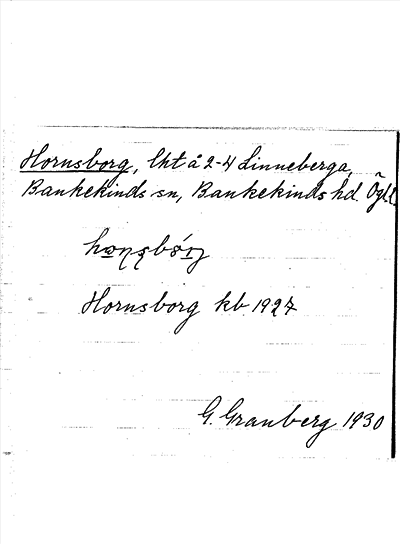 Hornsborg, lht å 2-4 Linneberga,
Bankekinds sn, Bankekinds hd. Ögl.
Hornsborg kb 1927
G. Granberg 1930